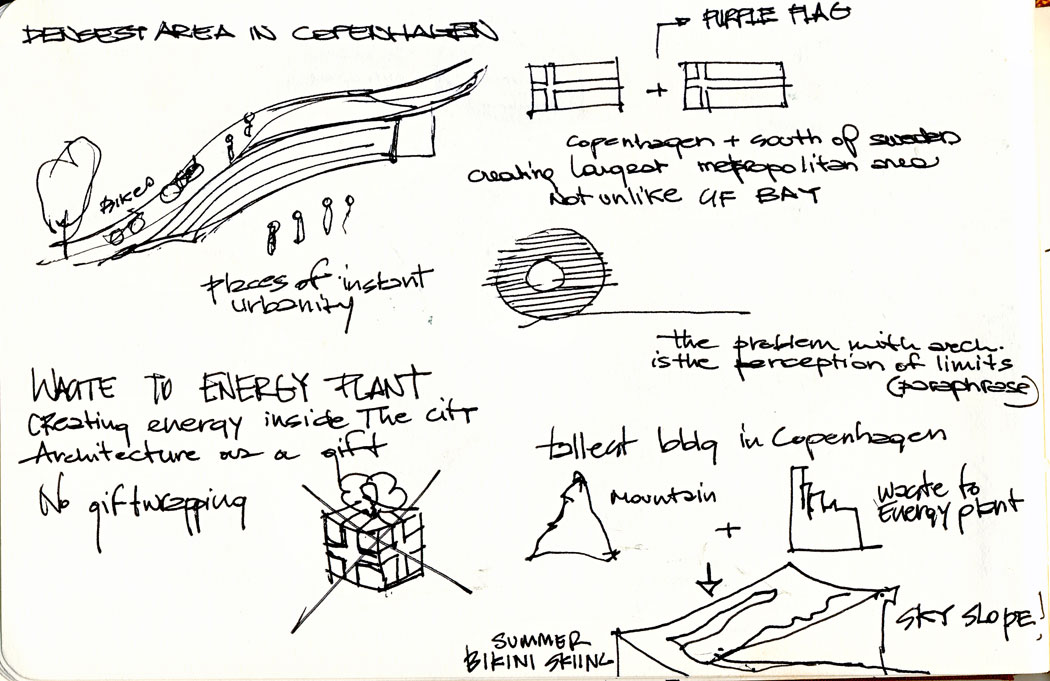 DENSEST AREA IN COPENHAGEN
BIKES
places of instant
urbanity
PURPLE FLAG
+
copenhagen + south of sweden
creating largest metropolitan area
Not unlike SF BAY
the problem with arch.
is the perception of limits
(paraphrase)
WASTE TO ENERGY PLANT
creating energy inside The city
Architecture as a gift
No giftwrapping
tallest bldg in Copenhagen
mountain
+
waste to
Energy plant
SKY SLOPE!
SUMMER
BIKINI SKIING